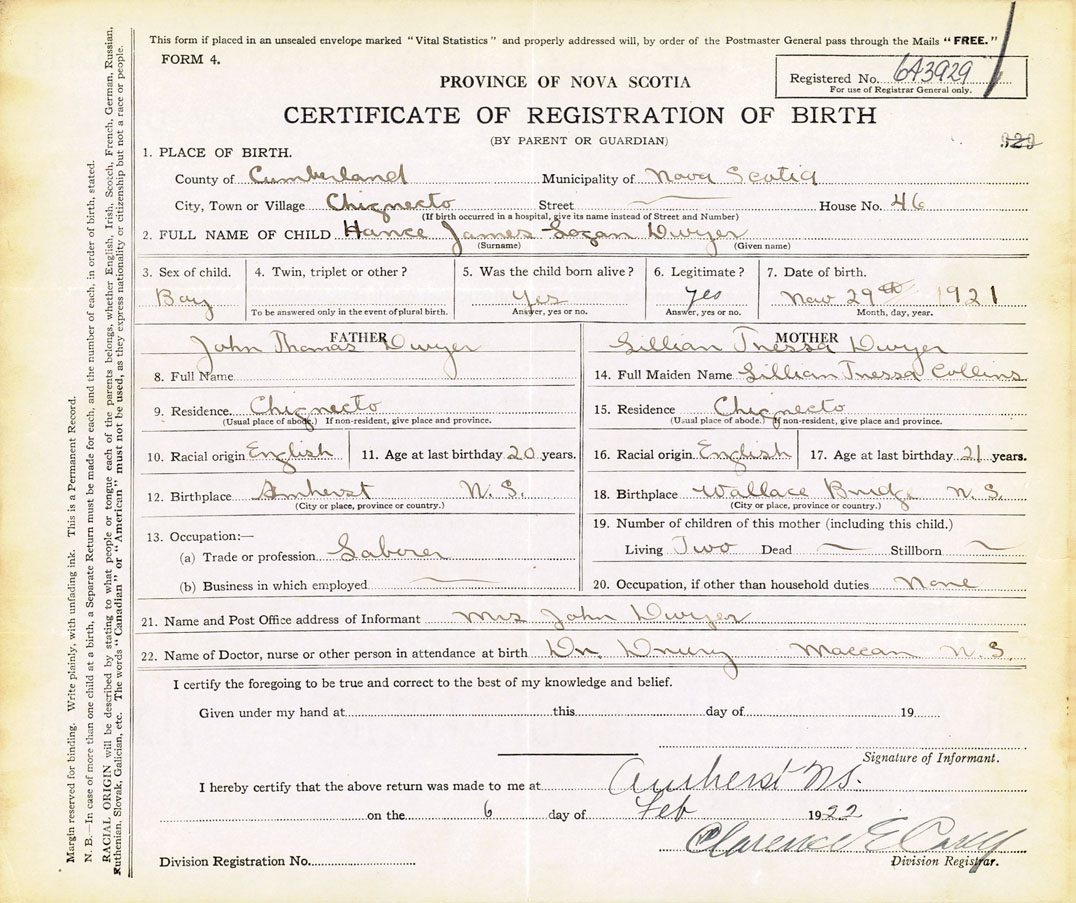 This form if placed in an unsealed envelope marked "Vital Statistics" and properly addressed will, by order of the Postmaster General pass through the Mails "FREE."
FORM 4.
PROVINCE OF NOVA SCOTIA
Registered No. 643929
For use of Registrar General only.
CERTIFICATE OF REGISTRATION OF BIRTH
(BY PARENT OR GUARDIAN)
1. PLACE OF BIRTH.
County of Cumberland Municipality of Nova Scotia
City, Town or Village Chignecto Street House No. 46
(If birth occurred in a hospital, give its name instead of Street and Number)
2. FULL NAME OF CHILD Hance James Logan Dwyer
(Surname) (Given name)
3. Sex of child. 4. Twin, triplet or other? 5. Was the child born alive? 6. Legitimate? 7. Date of birth.
Boy Yes Yes Nov 29th 1921
To be answered only in the event of plural birth. Answer, yes or no. Answer, yes or no. Month, day, year.
FATHER MOTHER
John Thomas Dwyer Lillian Tressa Dwyer
8. Full Name 14. Full Maiden Name Lillian Tressa Collins
9. Residence. Chignecto 15. Residence Chignecto
(Usual place of abode.) If non-resident, give place and province. (Usual place of abode.) If non-resident, give place and province.
10. Racial origin English 11. Age at last birthday 20 years. 16. Racial origin English 17. Age at last birthday 21 years.
12. Birthplace Amherst N. S. 18. Birthplace Wallace Bridge N. S.
(City or place, province or country.) (City or place, province or country.)
13. Occupation:— 19. Number of children of this mother (including this child.)
(a) Trade or profession Laborer Living Two Dead Stillborn
(b) Business in which employed 20. Occupation, if other than household duties None
21. Name and Post Office address of Informant Mrs John Dwyer
22. Name of Doctor, nurse or other person in attendance at birth Dr. Drury Maccan N. S.
I certify the foregoing to be true and correct to the best of my knowledge and belief.
Given under my hand at this day of 19
Signature of Informant.
I hereby certify that the above return was made to me at Amherst NS.
on the 6 day of Feb 1922
Clarence E
Division Registration No. Division Registrar.
Margin reserved for binding. Write plainly, with unfading ink. This is a Permanent Record.
N. B.—In case of more than one child at a birth, a Separate Return must be made for each, and the number of each, in order of birth, stated.
RACIAL ORIGIN will be described by stating to what people or tongue each of the parents belongs, whether English, Irish, Scotch, French, German, Russian,
Ruthenian, Slovak, Galician, etc. The words "Canadian" or "American" must not be used, as they express nationality or citizenship but not a race or people.